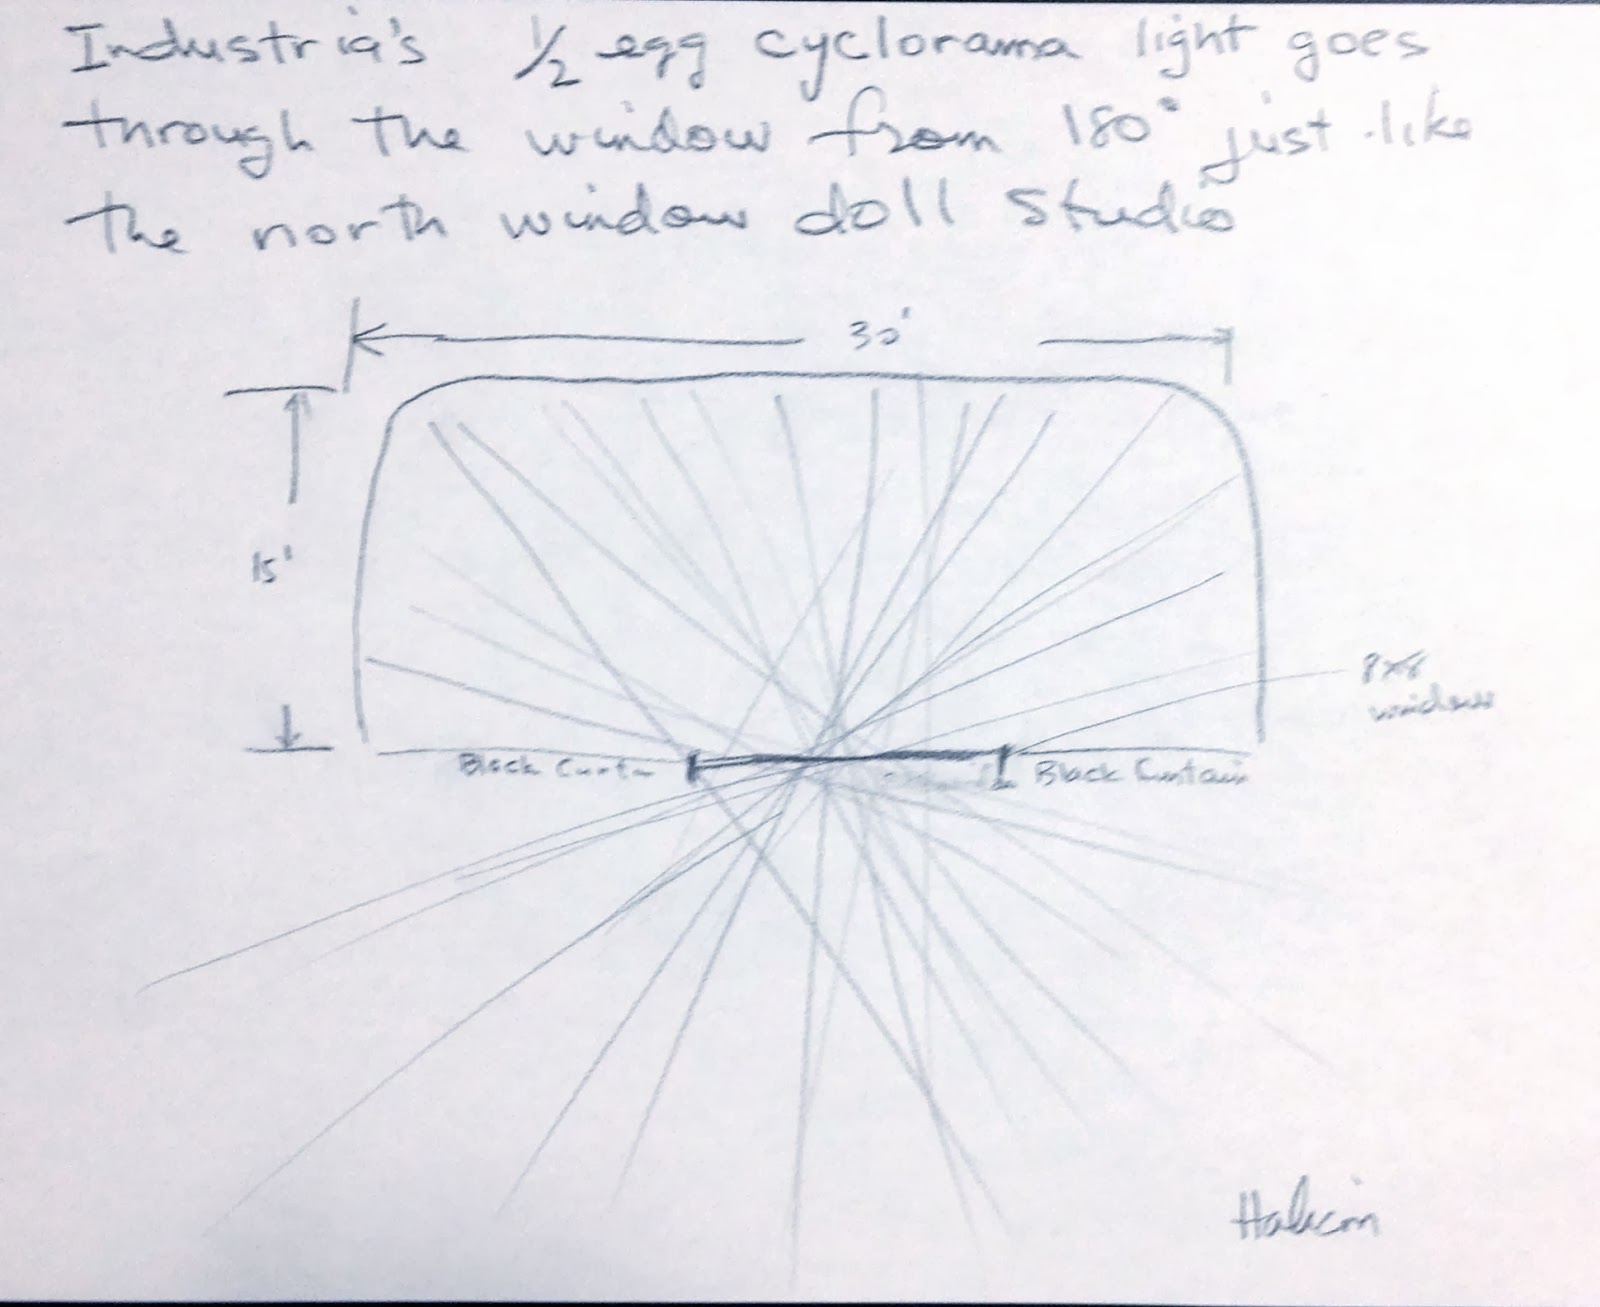 Industria's ½ egg cyclorama light goes
through the window from 180° just like
the north window doll studio
30'
15'
8x8
window
Black Curta
Black Curtain